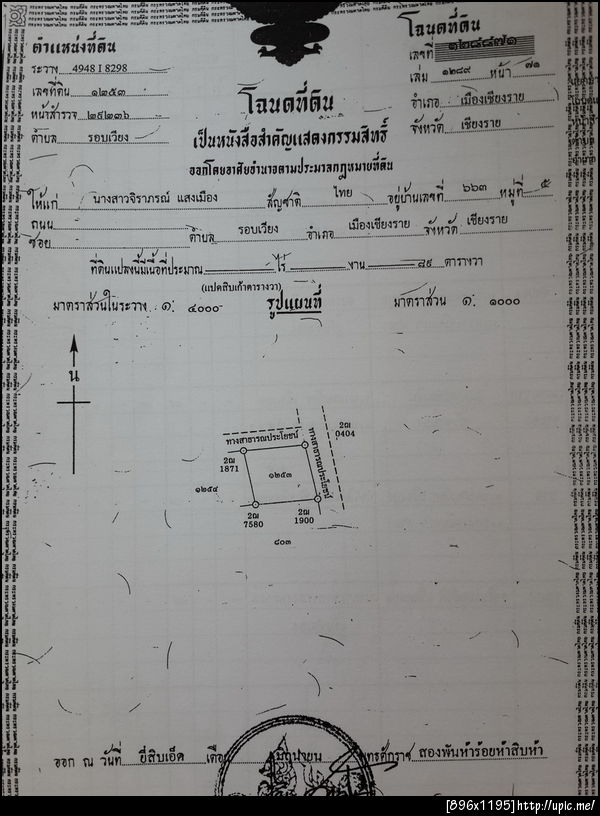 ตำแหน่งที่ดิน
ระวาง 4948 I 8298
เลขที่ดิน ๑๒๕๓
หน้าสำรวจ ๒๙๒๓๖
ตำบล รอบเวียง
โฉนดที่ดิน
เลขที่ ๑๒๘๘๗๑
เล่ม ๑๒๘๙ หน้า ๗๑
อำเภอ เมืองเชียงราย
จังหวัด เชียงราย
โฉนดที่ดิน
เป็นหนังสือสำคัญแสดงกรรมสิทธิ์
ออกโดยอาศัยอำนาจตามประมวลกฎหมายที่ดิน
ให้แก่ นางสาวจิราภรณ์ แสงเมือง สัญชาติ ไทย อยู่บ้านเลขที่ ๖๖๓ หมู่ที่ ๕
ถนน
ซอย ตำบล รอบเวียง อำเภอ เมืองเชียงราย จังหวัด เชียงราย
ที่ดินแปลงนี้มีเนื้อที่ประมาณ ไร่ งาน ๘๙ ตารางวา
(แปดสิบเก้าตารางวา)
มาตราส่วนในระวาง ๑: ๔๐๐๐ รูปแผนที่ มาตราส่วน ๑: ๑๐๐๐
น
ทางสาธารณประโยชน์
ทางสาธารณประโยชน์
2ฌ
0404
2ฌ
1871
๑๒๕๓
๑๒๕๔
2ฌ
7580
2ฌ
1900
๘๐๓
ออก ณ วันที่ ยี่สิบเอ็ด เดือน มิถุนายน พุทธศักราช สองพันห้าร้อยห้าสิบห้า
[896x1195]http://upic.me/